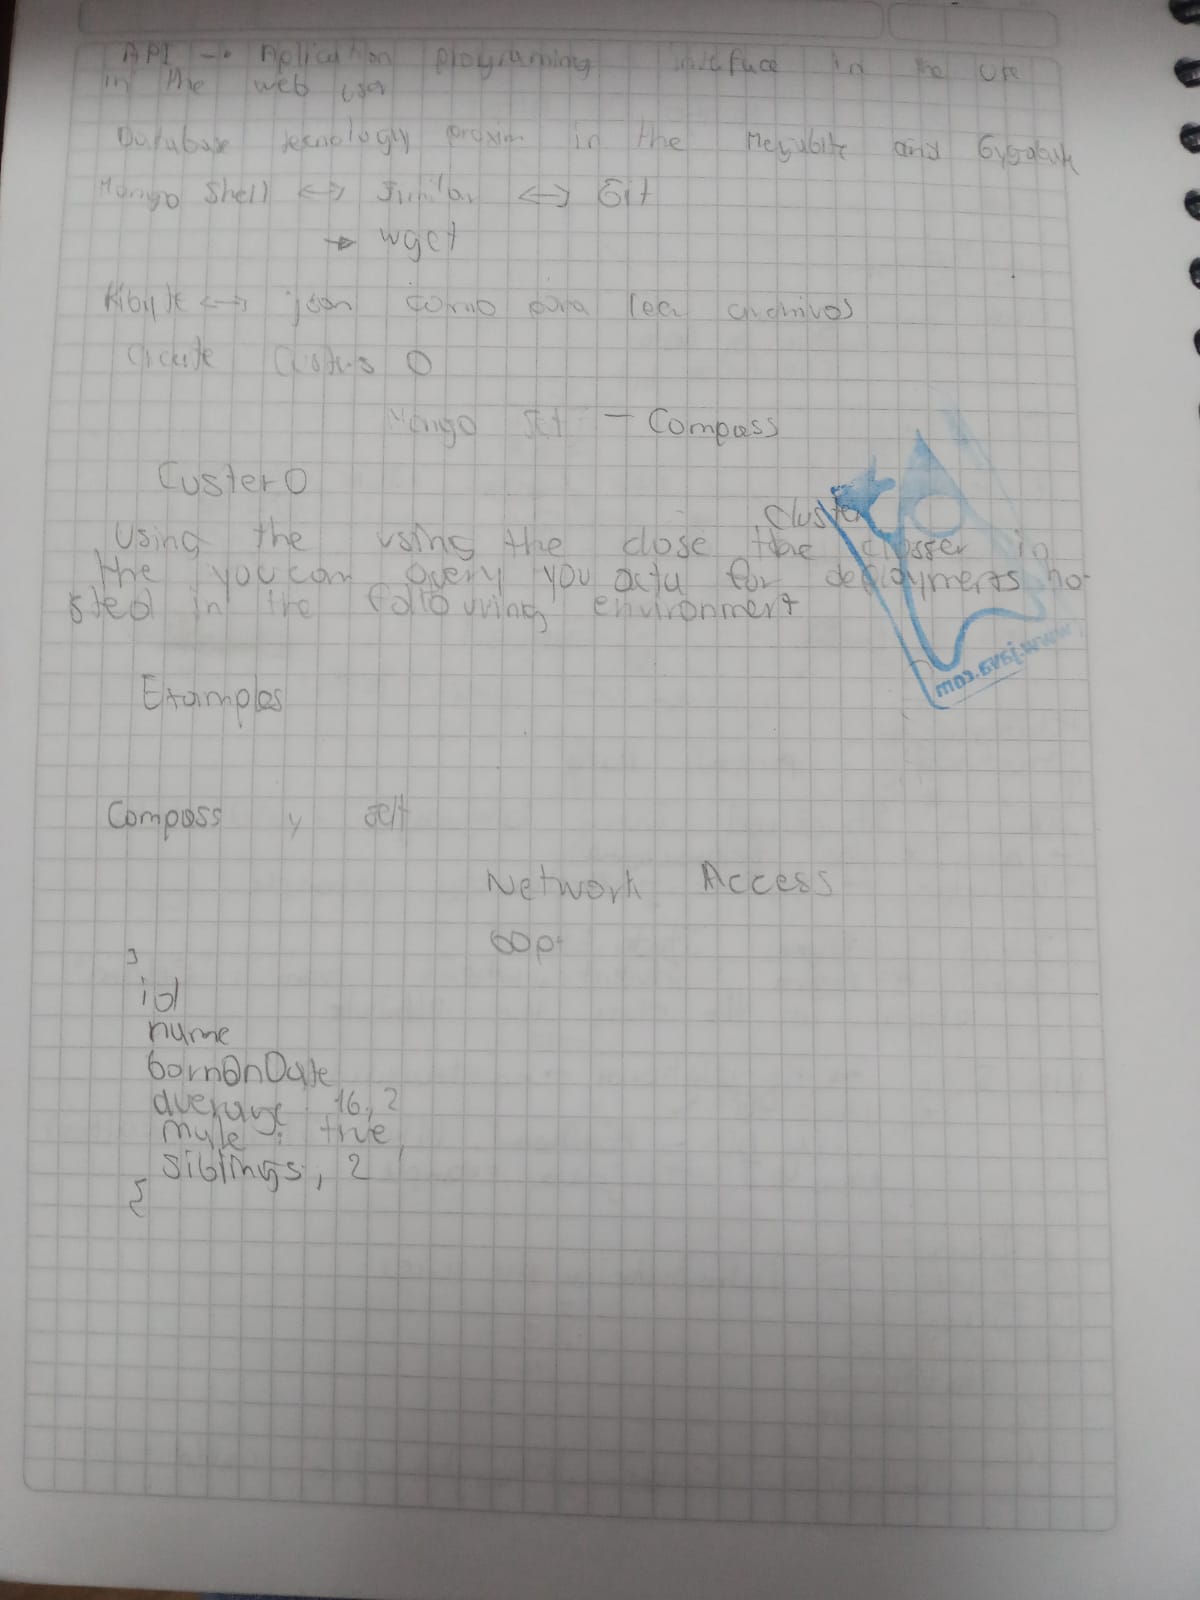 API → Aplication programing interface in the use
in the web user
Database tecnologly proxim in the Megabite and Gygabite
Mongo Shell ↔ Similar ↔ Git
→ wget
↔ json como para leer archivos
Create Clusters 0
Mongo Set - Compass
Custer0
cluster
Using the using the close the closser in
the you can query you datu for deployments ho-
sted in the following environment
www.java.com
Examples
Compass y self
Network Access
}
id
name
bornOnDate
average 16,2
male : true,
siblings, 2
{